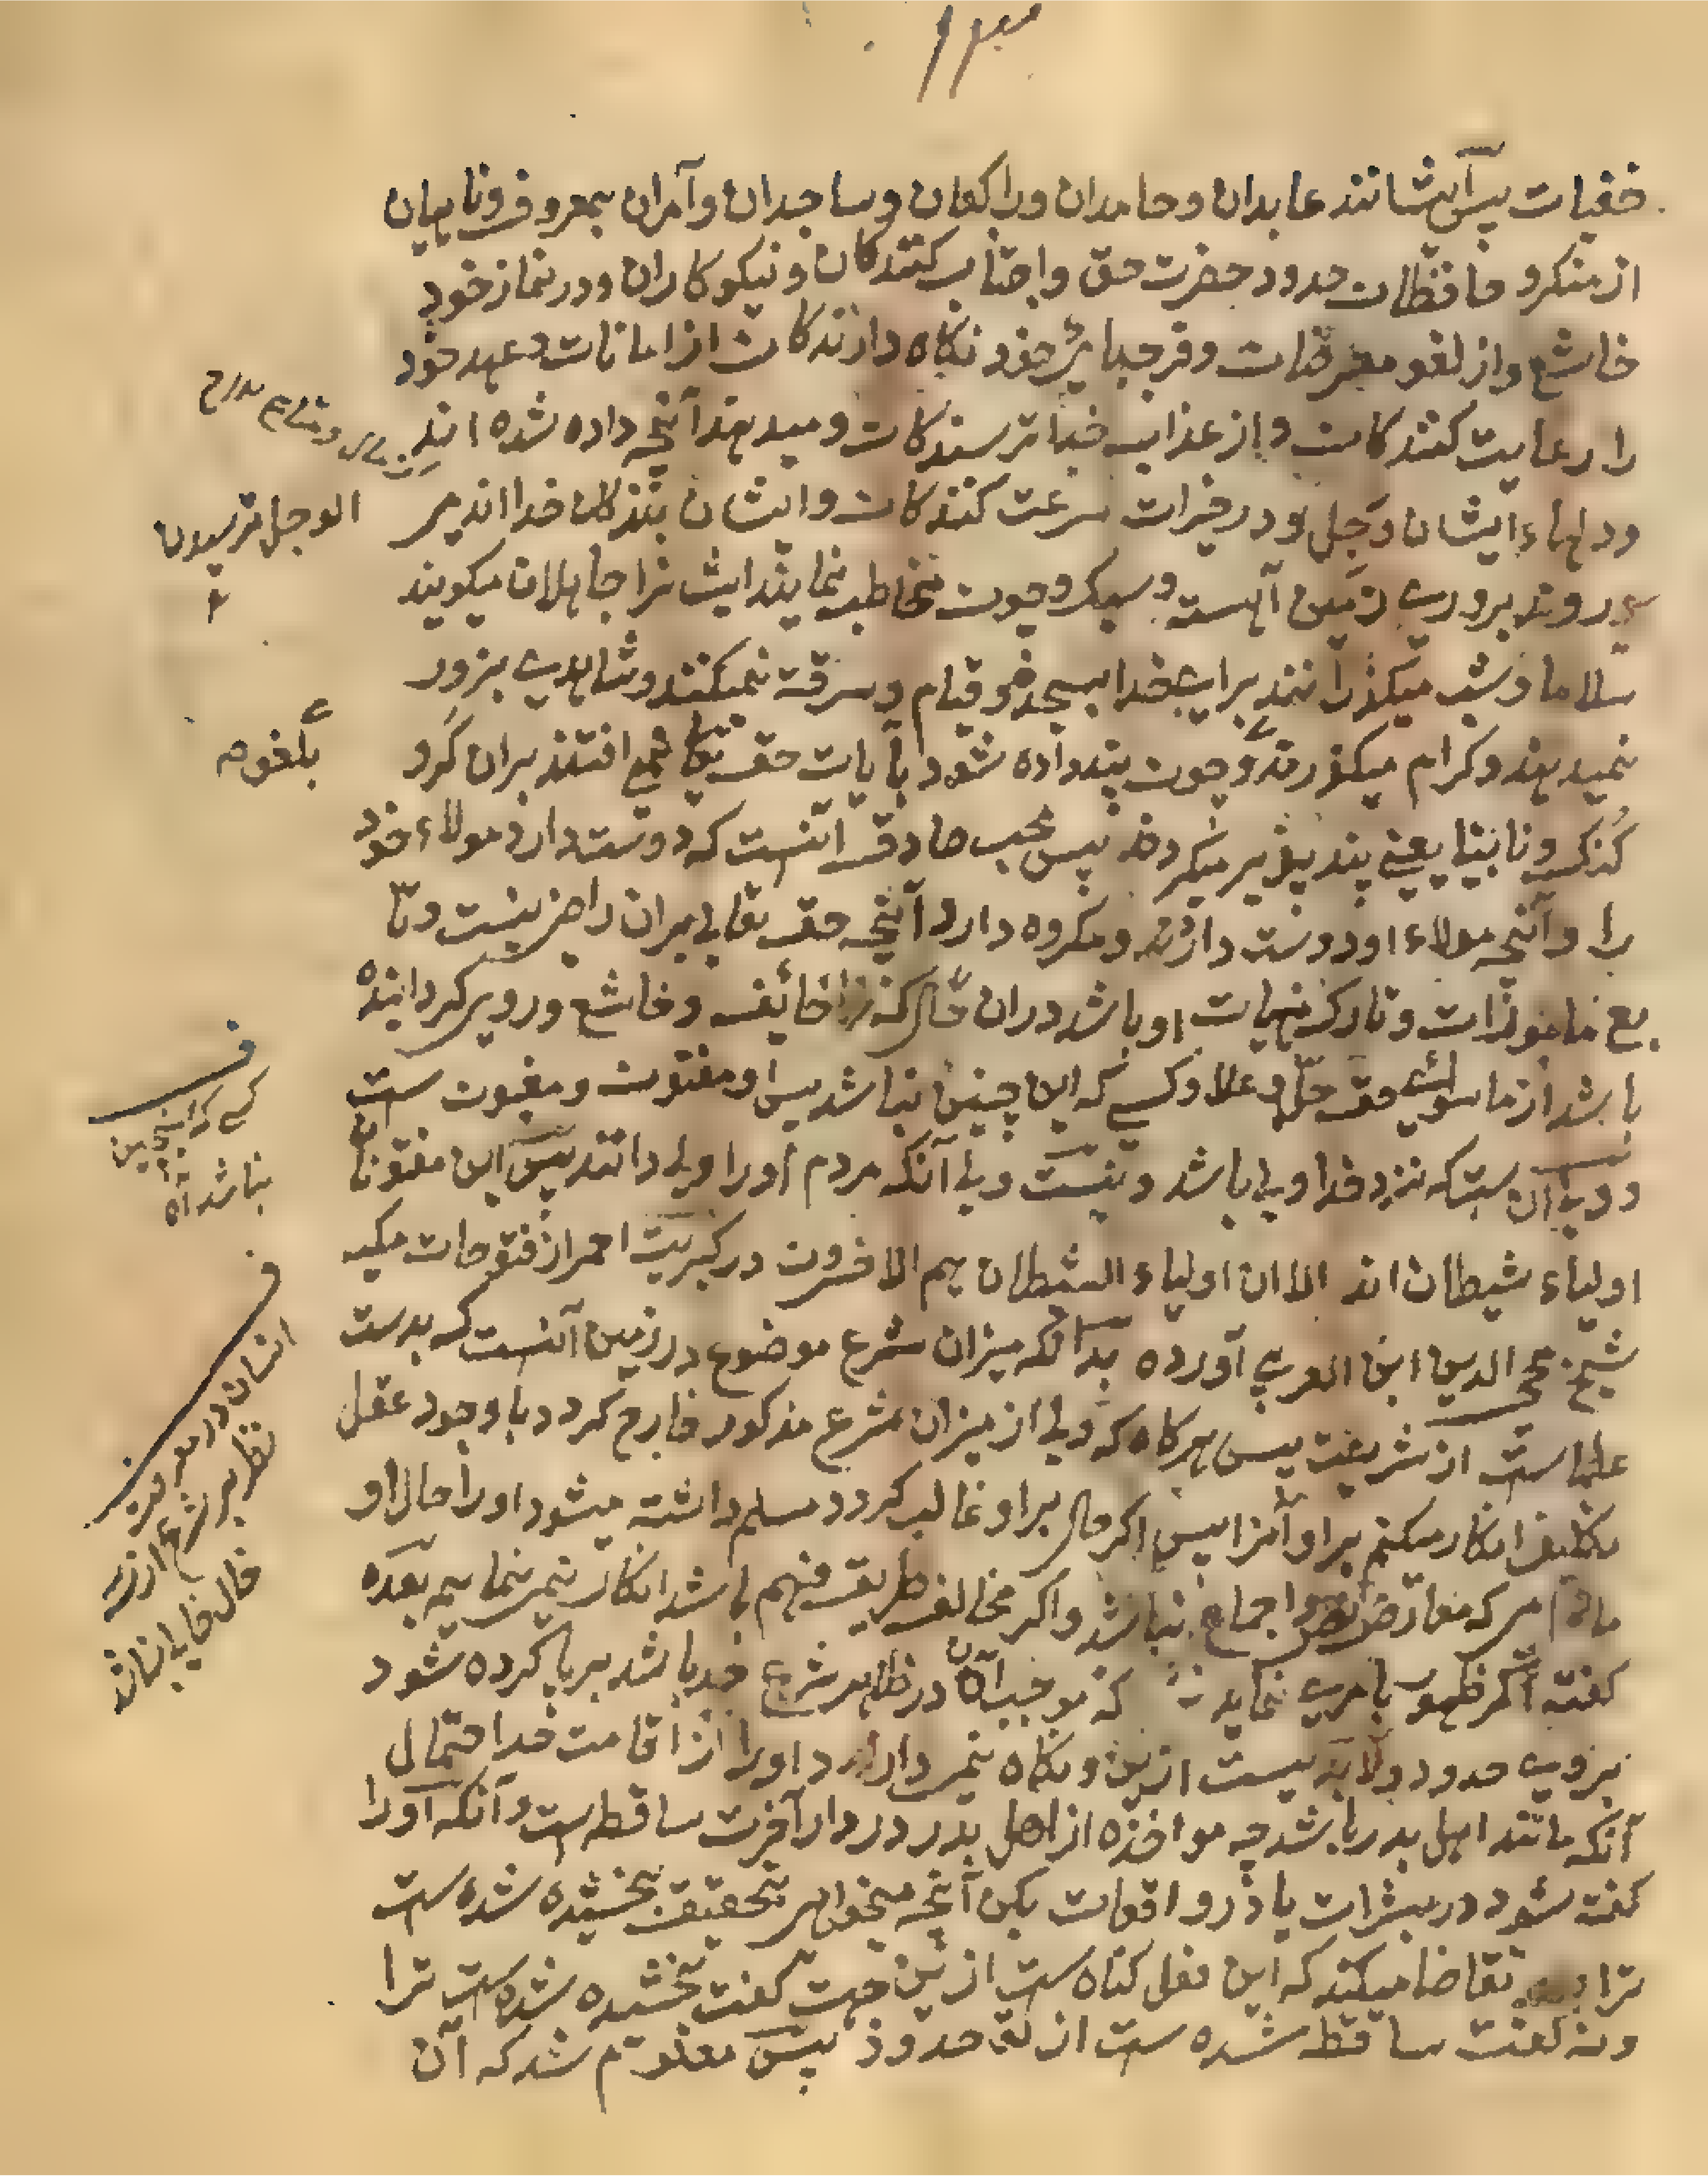 ۱۳
خفیات پس ایشانند عابدان و حامدان و راکعان و ساجدان و آمران بمعروف و ناهیان
از منکر و حافظان حدود حضرت حق و اجتناب کنندکان و نیکوکاران و در نماز خود
خاشع و از لغو معرضان و فرجهایش خود نکاه دارندکان از امانات و عهد خود
را رعایت کنندکان و از عذاب خدا ترسندکان و میدهند آنچه داده شده اند
ودلهاء ایشان وجل و در خیرات سرعت کنندکان و ایشان بندکان خدا اند می
روند بروی زمین آهسته و سبک و چون مخاطب نمایند ایشانرا جاهلان میکویند
سلاما و شب میکذرانند برای خدا بسجده و قیام و سرقه نمیکنند و شاهدی بزور
نمیدهند و کرام میکذرند و چون پند داده شود بآیات حق تعالی نمی افتند بران کرو
کنک و نابینا یعنی پند پذیر میکردند پس محب صادق آنست که دوست دارد مولاء خود
را و آنچه مولاء او دوست دارد و مکروه دارد آنچه حق تعالی بران راضی نیست و تا
بع مامورات و تارک منهیات او باشد دران حال که ترا خائف و خاشع و روی کردانیده
باشد از ماسوائی حق جل و علا و کسی که این چنین نباشد پس او مفتون و مغبون ست
و ولی آن ست که نزد خدا ولی باشد و نیست ولی آنکه مردم او را ولی دانند پس این مفتونان
اولیاء شیطان اند الا ان اولیاء الشیطان هم الاخسرون در کبریت احمر از فتوحات مکیه
شیخ محی الدین ابن العربی آورده بدانکه میزان شرع موضوع در زمین آنست که بدست
علما ست از شریعت پس هرکاه که ولی از میزان شرع مذکور خارج کردد باوجود عقل
تکلیف انکار میکنم براو آنرا پس اکر حال براو غالب کردد مسلم داشته میشود او را حال او
مادام که معارض نص و اجماع نباشد و اکر مخالف طریق فهم باشد انکار نمی نمایم بعده
کفته اکر ظهور بامری نماید که موجب آن در ظاهر شرع حد باشد برپا کرده شود
بروی حدود ولابد نیست ازین و نکاه نمی دارد او را از اقامت حد احتمال
آنکه مانند اهل بدر باشد چه مواخذه از اهل بدر در دار آخرت ساقط ست و آنکه اورا
کفته شود در مبشرات یا در واقعات بکن آنچه میخواهی بتحقیق بخشیده شده ست
ترا تقاضا میکند که این فعل کناه ست ازین جهت کفت بخشیده شده ست ترا
ونه کفت ساقط شده ست از تو حدود پس معلوم شد که آن
الوجل ترسیدن
بلغوه
ف
کسی که اینچنین
نباشد آه
ف